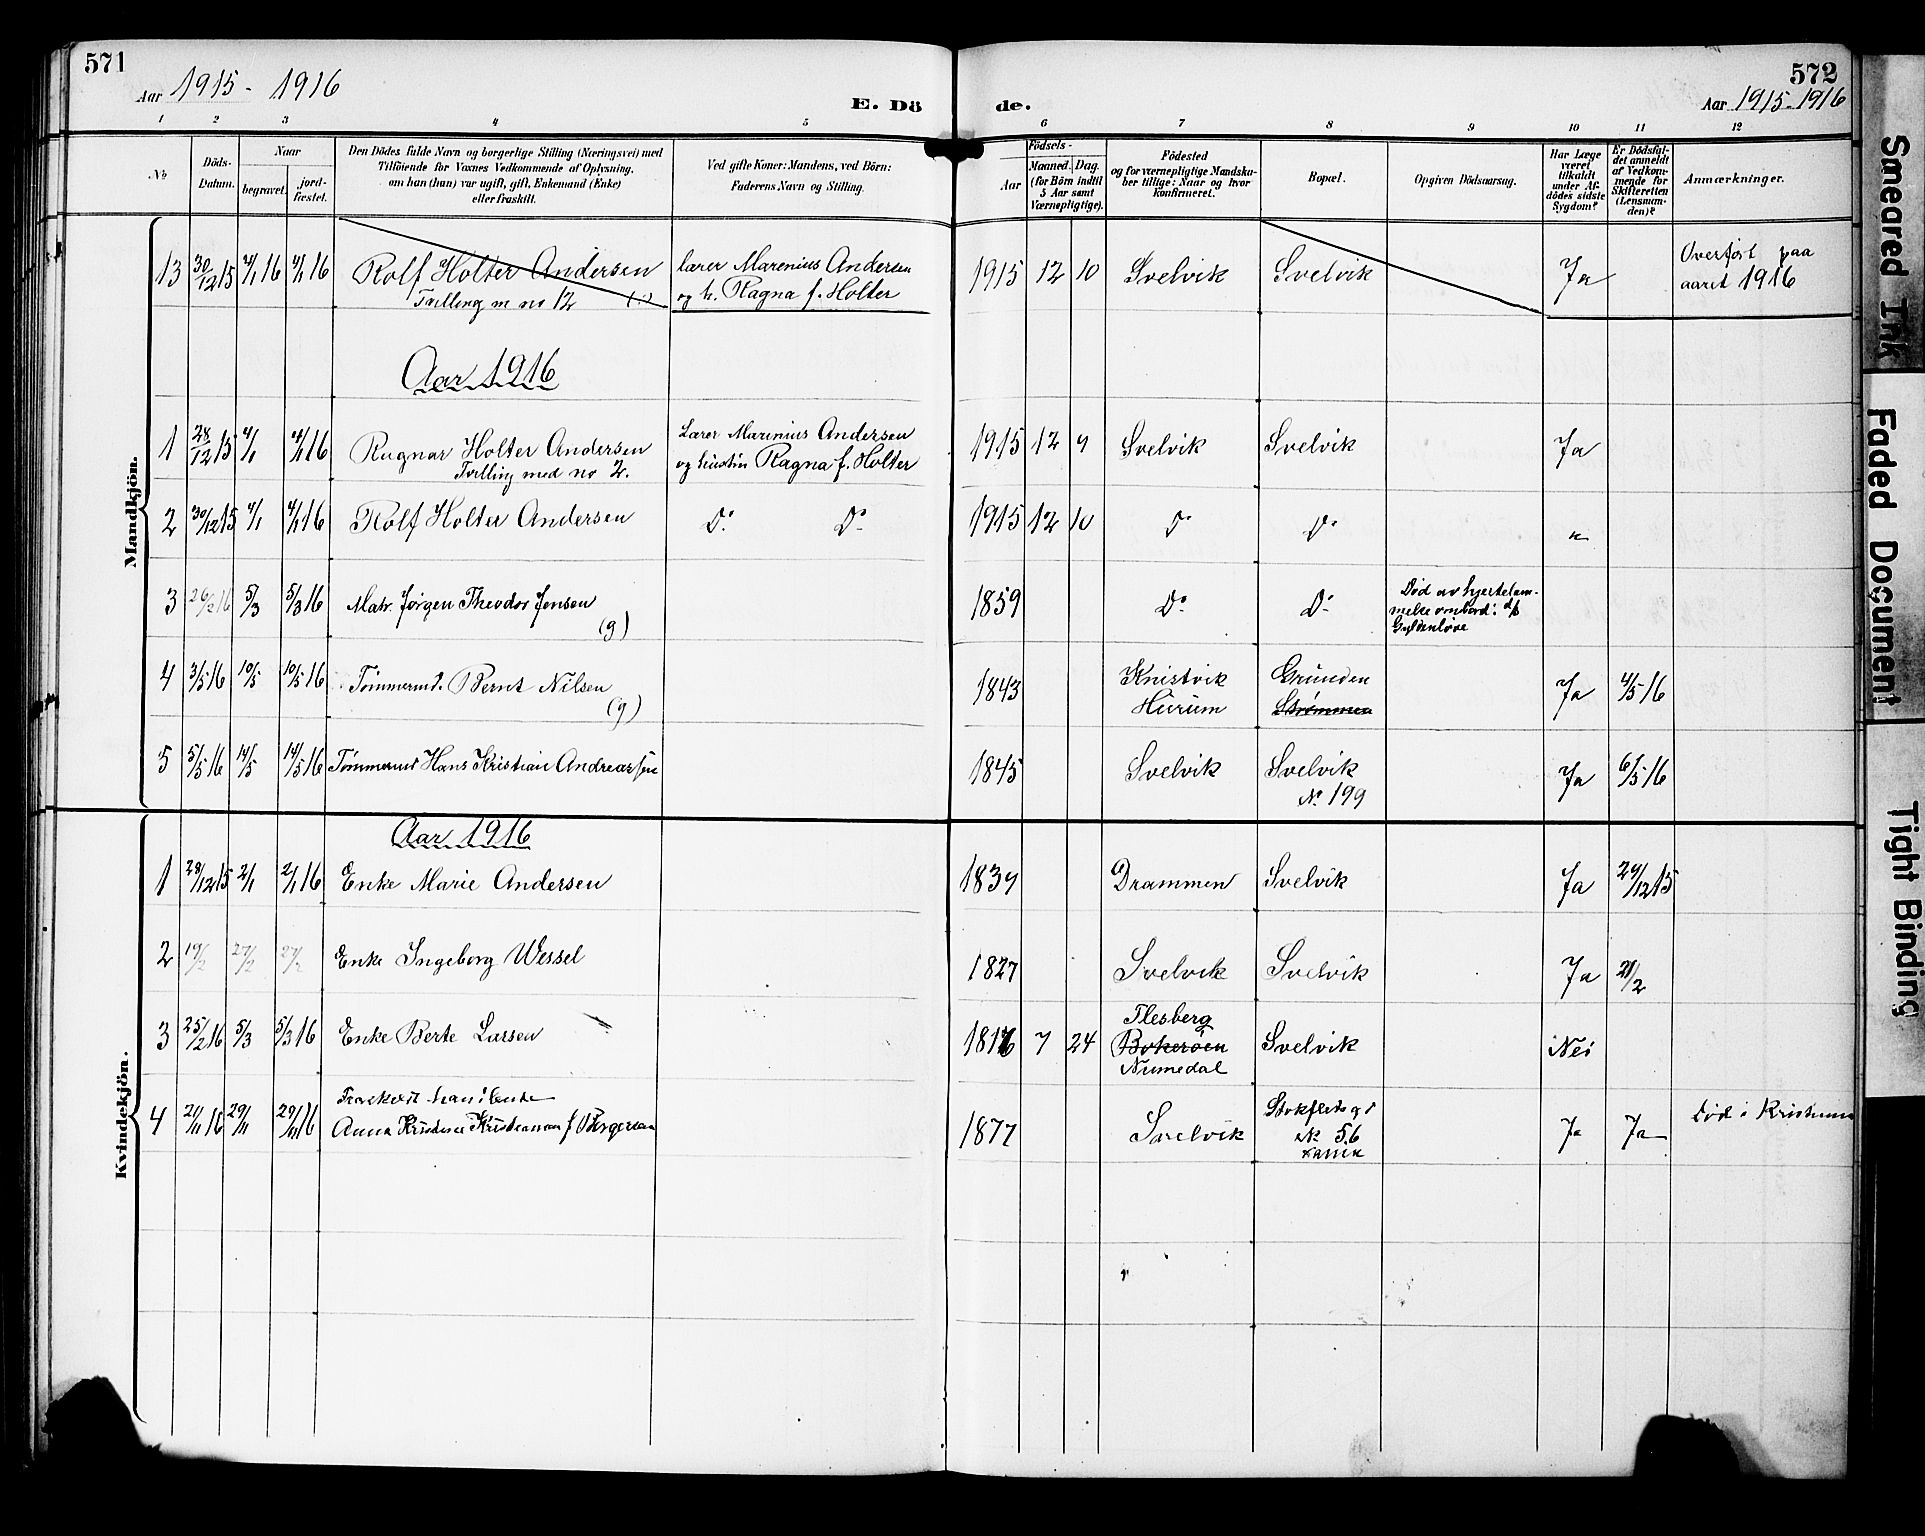 571
Aar 1915 - 1916
E. Dö
de.
572
Aar 1915-1916
1 2 3 4 5 6 7 8 9 10 11 12
No
Döds-
Datum.
Naar
begravet.
jord-
fæstet.
Den Dödes fulde Navn og borgerlige Stilling (Næringsvei) med
Tilföiende for Voxnes Vedkommende af Oplysning,
om han (hun) var ugift, gift, Enkemand (Enke)
eller fraskilt.
Ved gifte Koner: Mandens, ved Börn:
Faderens Navn og Stilling.
Födsels-
Aar
Maaned. Dag.
(for Börn indtil
5 Aar samt
Værnepligtige).
Födested
og for værnepligtige Mandska-
ber tillige: Naar og hvor
konfirmeret.
Bopæl.
Opgiven Dödsaarsag.
Har Læge
været
tilkaldt
under Af-
dödes sidste
Sygdom?
Er Dödsfal-
det anmeldt
af Vedkom-
mende for
Skifteretten
(Lensman-
den)?
Anmærkninger.
Mandkjön.
13 30/12 15 4/1 16 4/1 16 Rolf Holter Andersen lærer Marenius Andersen 1915 12 10 Svelvik Svelvik Ja Overført paa
Tvilling m no 12 og h. Ragna f. Holter aaret 1916
Aar 1916
1 28/12 15 4/1 4/1 16 Ragnar Holter Andersen Lærer Marinius Andersen 1915 12 9 Svelvik Svelvik Ja
Tvilling med no 2. og hustru Ragna f. Holter
2 30/12 15 4/1 4/1 16 Rolf Holter Andersen Do Do 1915 12 10 Do Do "
3 26/2 16 5/3 5/3 16 Matr. Jørgen Theodor Jensen (g) 1859 Do Do Død av hjertelam-
melse ombord i d/s
Gyldenløve
4 3/5 16 10/5 10/5 16 Tømmermd. Bernt Nilsen (g) 1843 Knistvik Grunden Ja 4/5 16
Hurum Strømmen
5 5/5 16 14/5 14/5 16 Tømmermd Hans Kristian Andreassen 1845 Svelvik Svelvik Ja 6/5 16
No 199
Kvindekjön.
Aar 1916
1 28/12 15 2/1 2/1 16 Enke Marie Andersen 1839 Drammen Svelvik Ja 29/12 15
2 19/2 27/2 27/2 Enke Ingeborg Wessel 1827 Svelvik Svelvik Ja 21/2
3 25/2 16 5/3 5/3 16 Enke Berte Larsen 1816 7 24 Flesberg Svelvik Nei
Numedal
4 21/11 16 29/11 29/11 16 Fraskilt
Anna Kristine Kristiansen f Børgersen 1877 Svelvik No 56 Ja Ja Død i Kristiania
Smeared Ink
Faded Document
Tight Binding